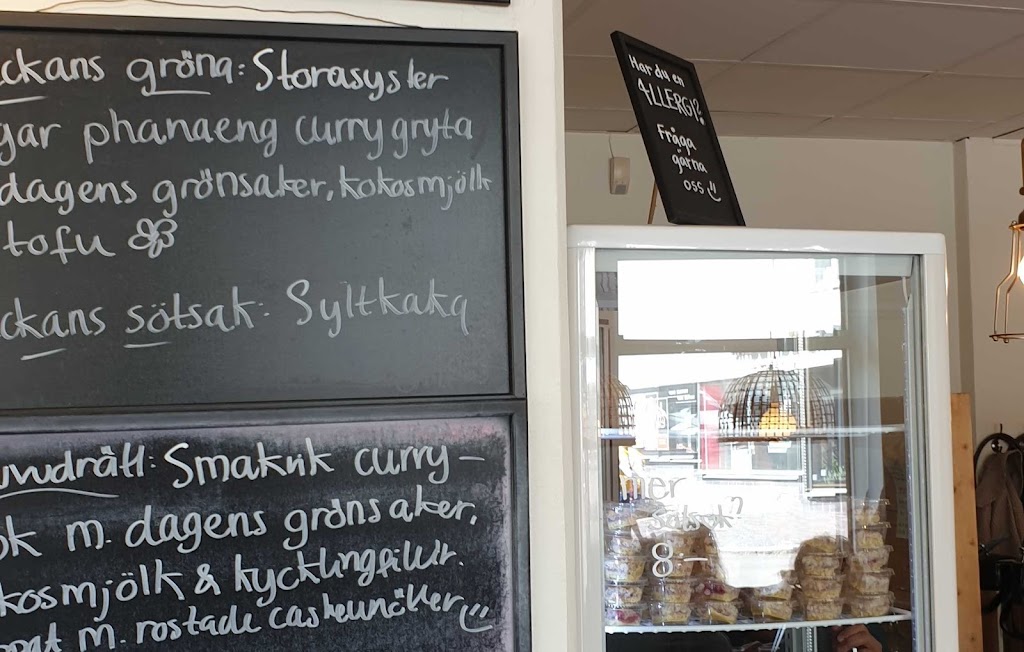 ckans gröna: Storasyster
gar phanaeng currygryta
dagens grönsaker, kokosmjölk
tofu
ckans sötsak: Syltkaka
uvudrätt: Smakrik curry-
ok m. dagens grönsaker,
kosmjölk & kycklingfiléer.
ppat m. rostade cashewnötter
Har du en
ALLERGI?
Fråga
gärna
oss
mer
sötsak?
8:-